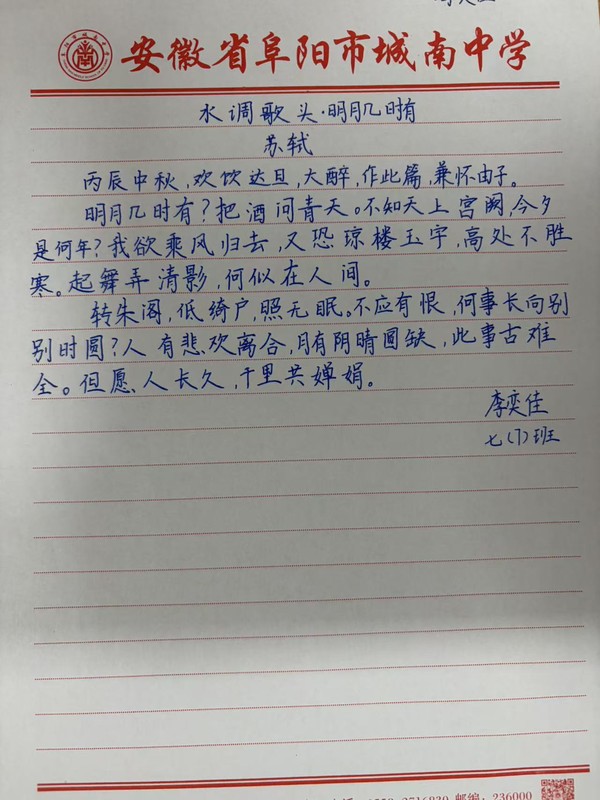 安徽省阜阳市城南中学
水调歌头·明月几时有
苏轼
丙辰中秋,欢饮达旦,大醉,作此篇,兼怀由子。
明月几时有?把酒问青天。不知天上宫阙,今夕
是何年?我欲乘风归去,又恐琼楼玉宇,高处不胜
寒。起舞弄清影,何似在人间。
转朱阁,低绮户,照无眠。不应有恨,何事长向别
别时圆?人有悲欢离合,月有阴晴圆缺,此事古难
全。但愿人长久,千里共婵娟。
李奕佳
七(7)班
邮编:236000